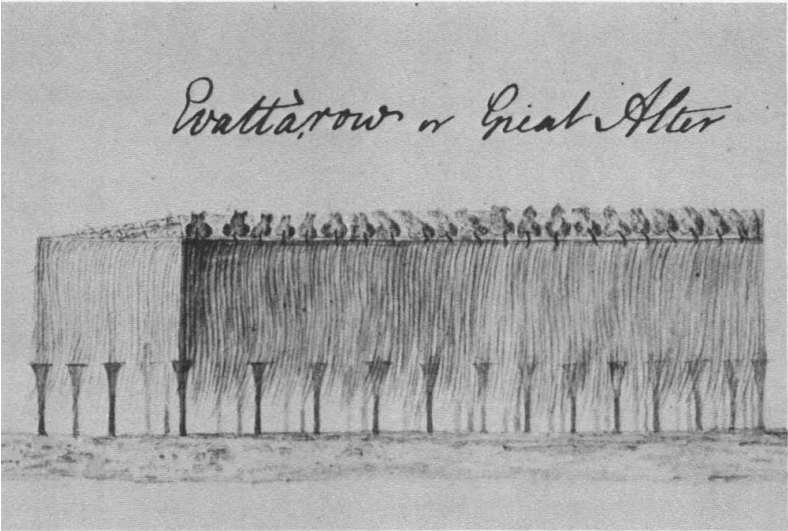 Evattàrow or Great Alter